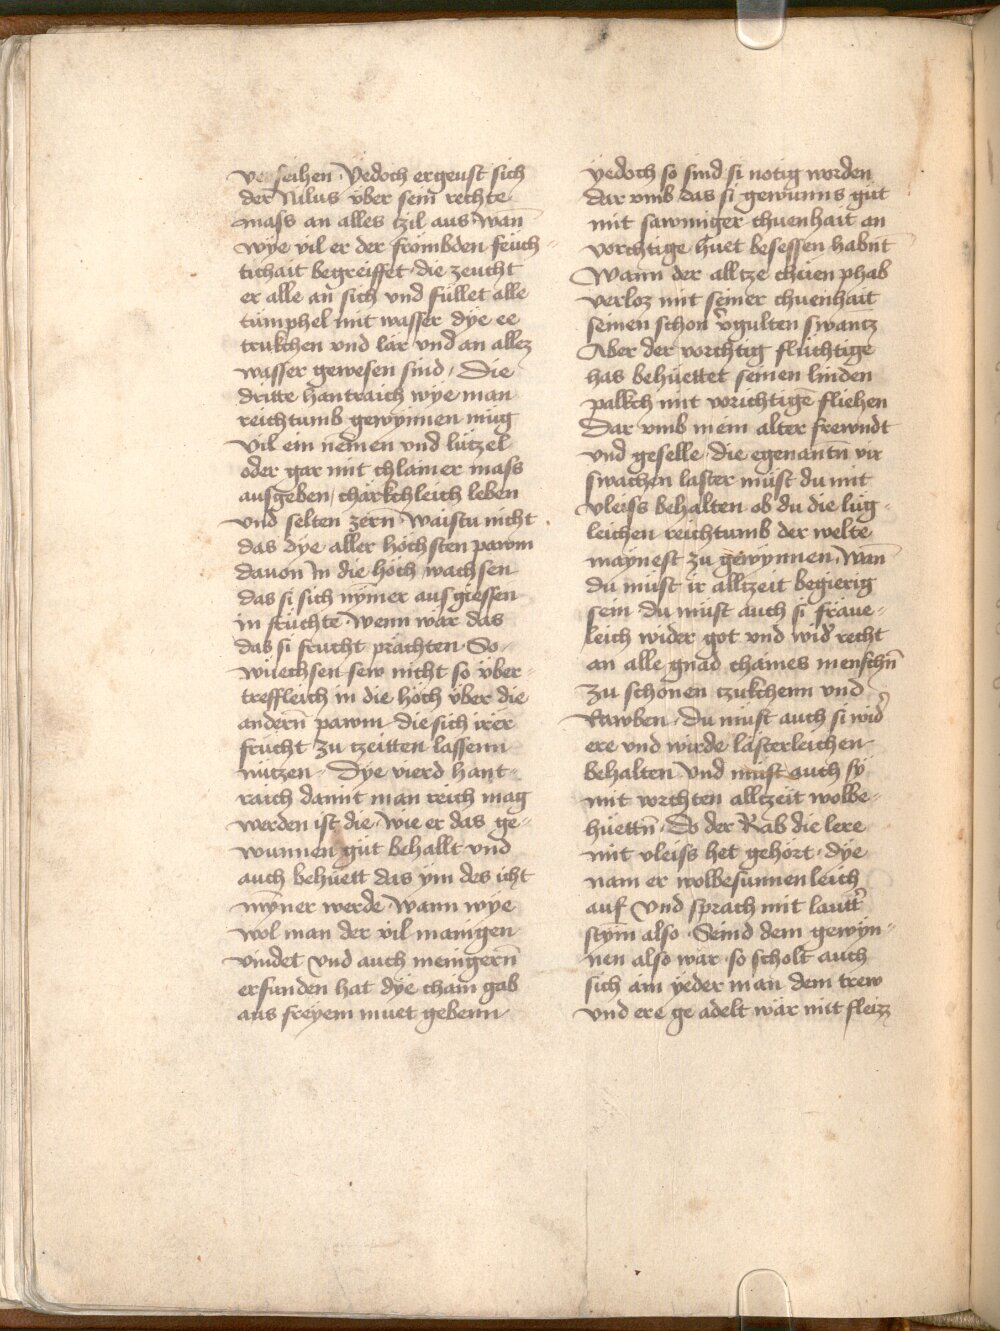 verseihen · Yedoch ergeust sich
der Nilus über sein rechte
mass an alles tzil aus Wan̄
wye vil er der frömbden feüch=
tichait begreiffet die zeucht
er alle an sich vnd füllet alle
tümphel mit wasser dye ee
trukchen vnd lär vnd an allez
wasser gewesen sind / Die
dritte hantraich wye man
reichtumb gewÿnnen müg
Vil ein nemen vnd lützel
oder gar mit chlainer mass
ausgeben / chärkchleich leben
vnd selten zern̄ · Waistu nicht
das dÿe aller höchsten pawm
dauon in die höch wachsen
das si sich nÿmer ausgiessen
in frücht · Wenn wär das
das si frucht prächten · So
wüechsen sew nicht so über=
treffleich in die höch über die
andern̄ pawm · die sich irer
frücht zu tzeitten lassenn
nützen · Dÿe vierd hant=
raich damit man reich mag
werden ist die · wie er das ge=
wunnen güt behallt vnd
auch behüett das ÿm des icht
mÿner werde · Wann wÿe
wol man der vil manigen
vindet vnd auch menigern̄
erfunden hat dÿe chain gab
aus freÿem muet gebenn
ÿedoch so sind si notig worden
dar vmb das si gewunns güt
mit sawmiger chuenhait an
vorchtige huet besessen habnt
Wann der alltze chüen phab
verloz mit seiner chuenhait
seinen schön v̄gulten swantz
Aber der vorchtig flüchtige
has behüettet seinen linden
palkch mit vorichtigē fliehen
Dar vmb mein alter frewndt
vnd geselle · die egenantn̄ vir
swachen laster müst du mit
vleiss behalten ob du die lüg=
leichen reichtumb der welte
maÿnest zu gewÿnnen · Wan̄
du müst ir alltzeit begierig
sein du müst auch si fräue=
leich wider got vnd wid' recht
an alle gnad chaines menschn̄
zu schonen tzukchenn vnd
Rawben · du müst auch si wid'
ere vnd wirde lästerleichen
behalten · Vnd müst auch sÿ
mit vorchten alltzeit wolbe=
hüettn̄ · Do der Rab die lere
mit vleiss het gehört · dÿe
nam er wolbesunnenleich
auf Vnd sprach mit lautt'
stÿm also · Seind dem gewÿn=
nen also wär · so scholt auch
sich ain ÿeder man dem trew
vnd ere ge adelt wär mit fleizz